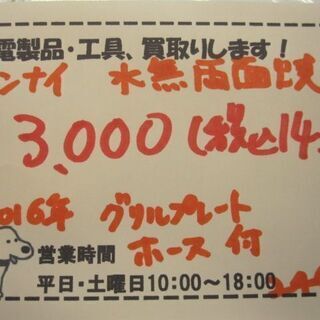 電製品・工具、買取りします!
ンナイ 水無両面焼
3,000(税込14
016年 グリルプレート
ホース付
営業時間
平日・土曜日10:00〜18:00